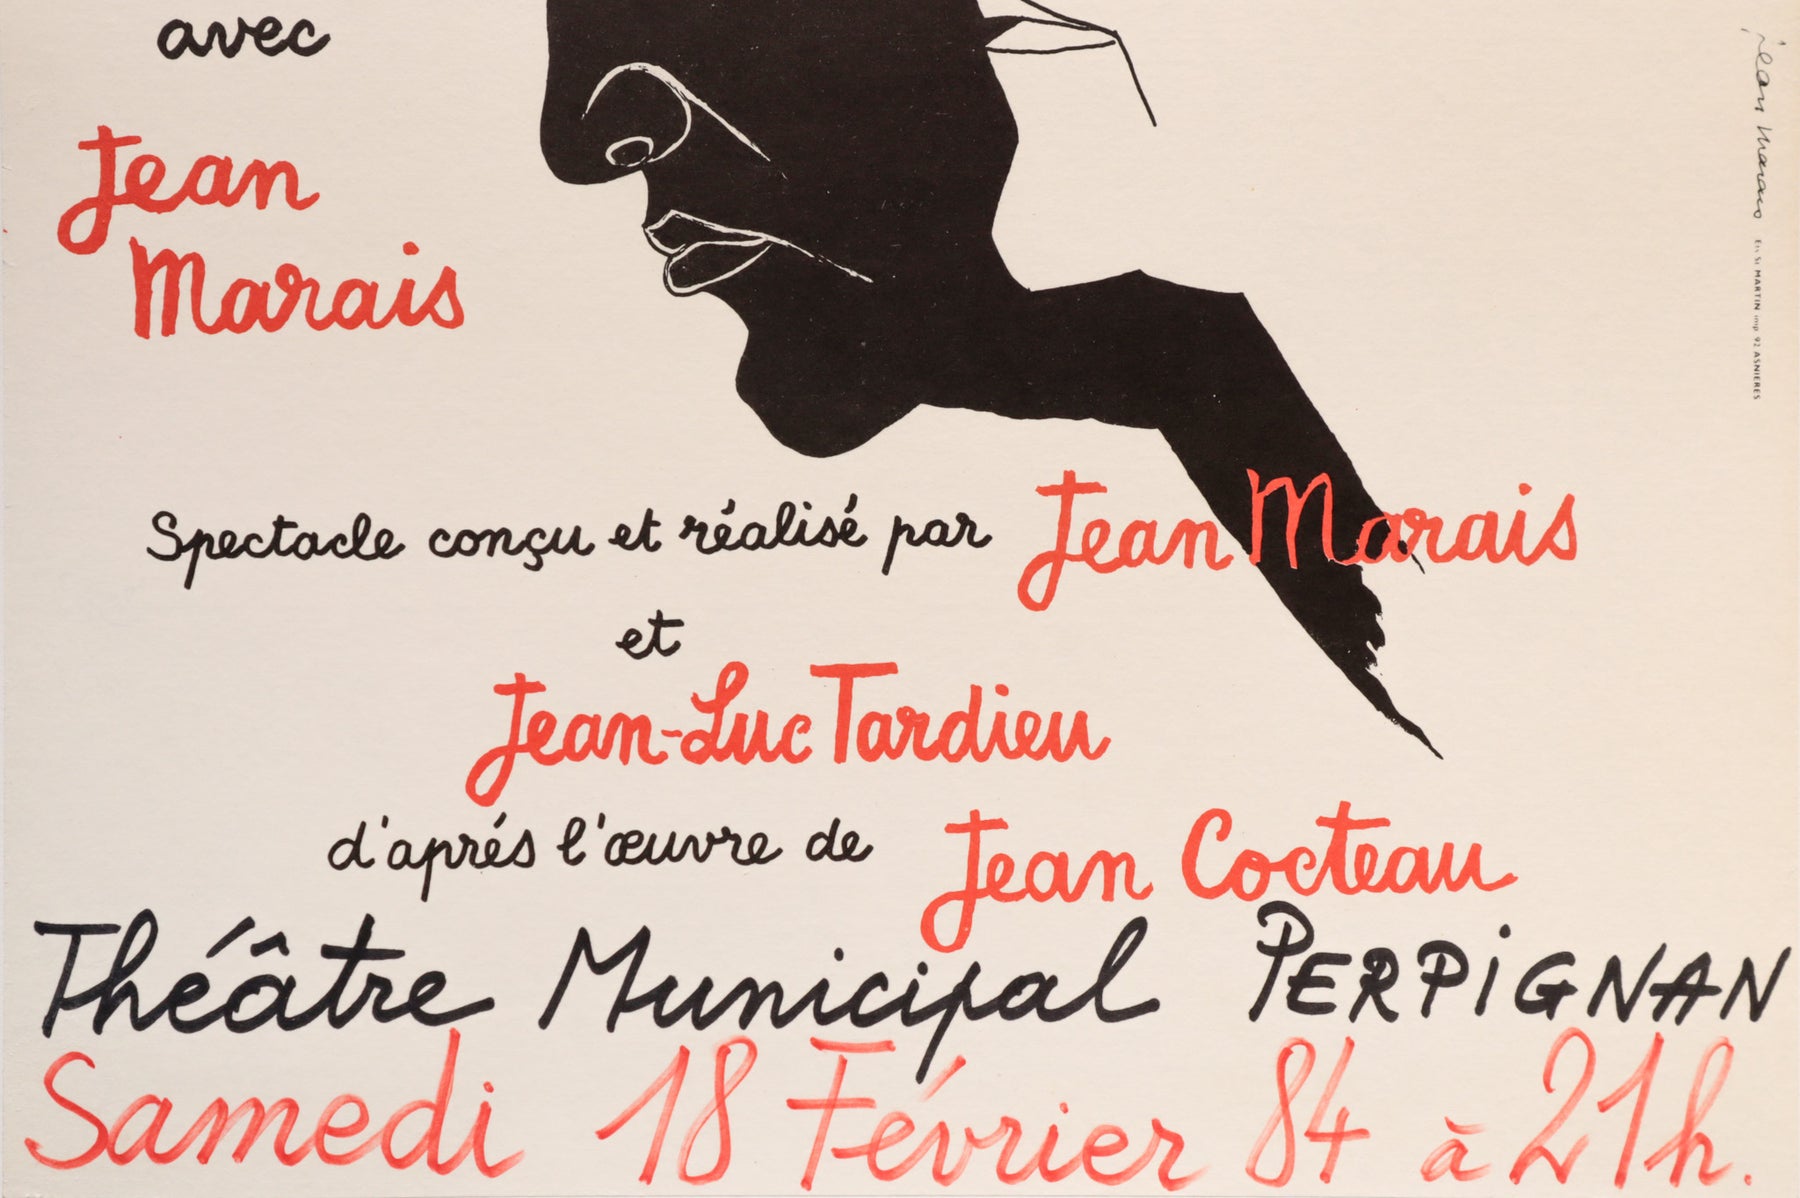 avec
Jean
Marais
Spectacle conçu et réalisé par Jean Marais
et
Jean-Luc Tardieu
d'aprés l'œuvre de Jean Cocteau
Théâtre Municipal PERPIGNAN
Samedi 18 Février 84 à 21h.
jean marais Ets St MARTIN imp 92 ASNIERES